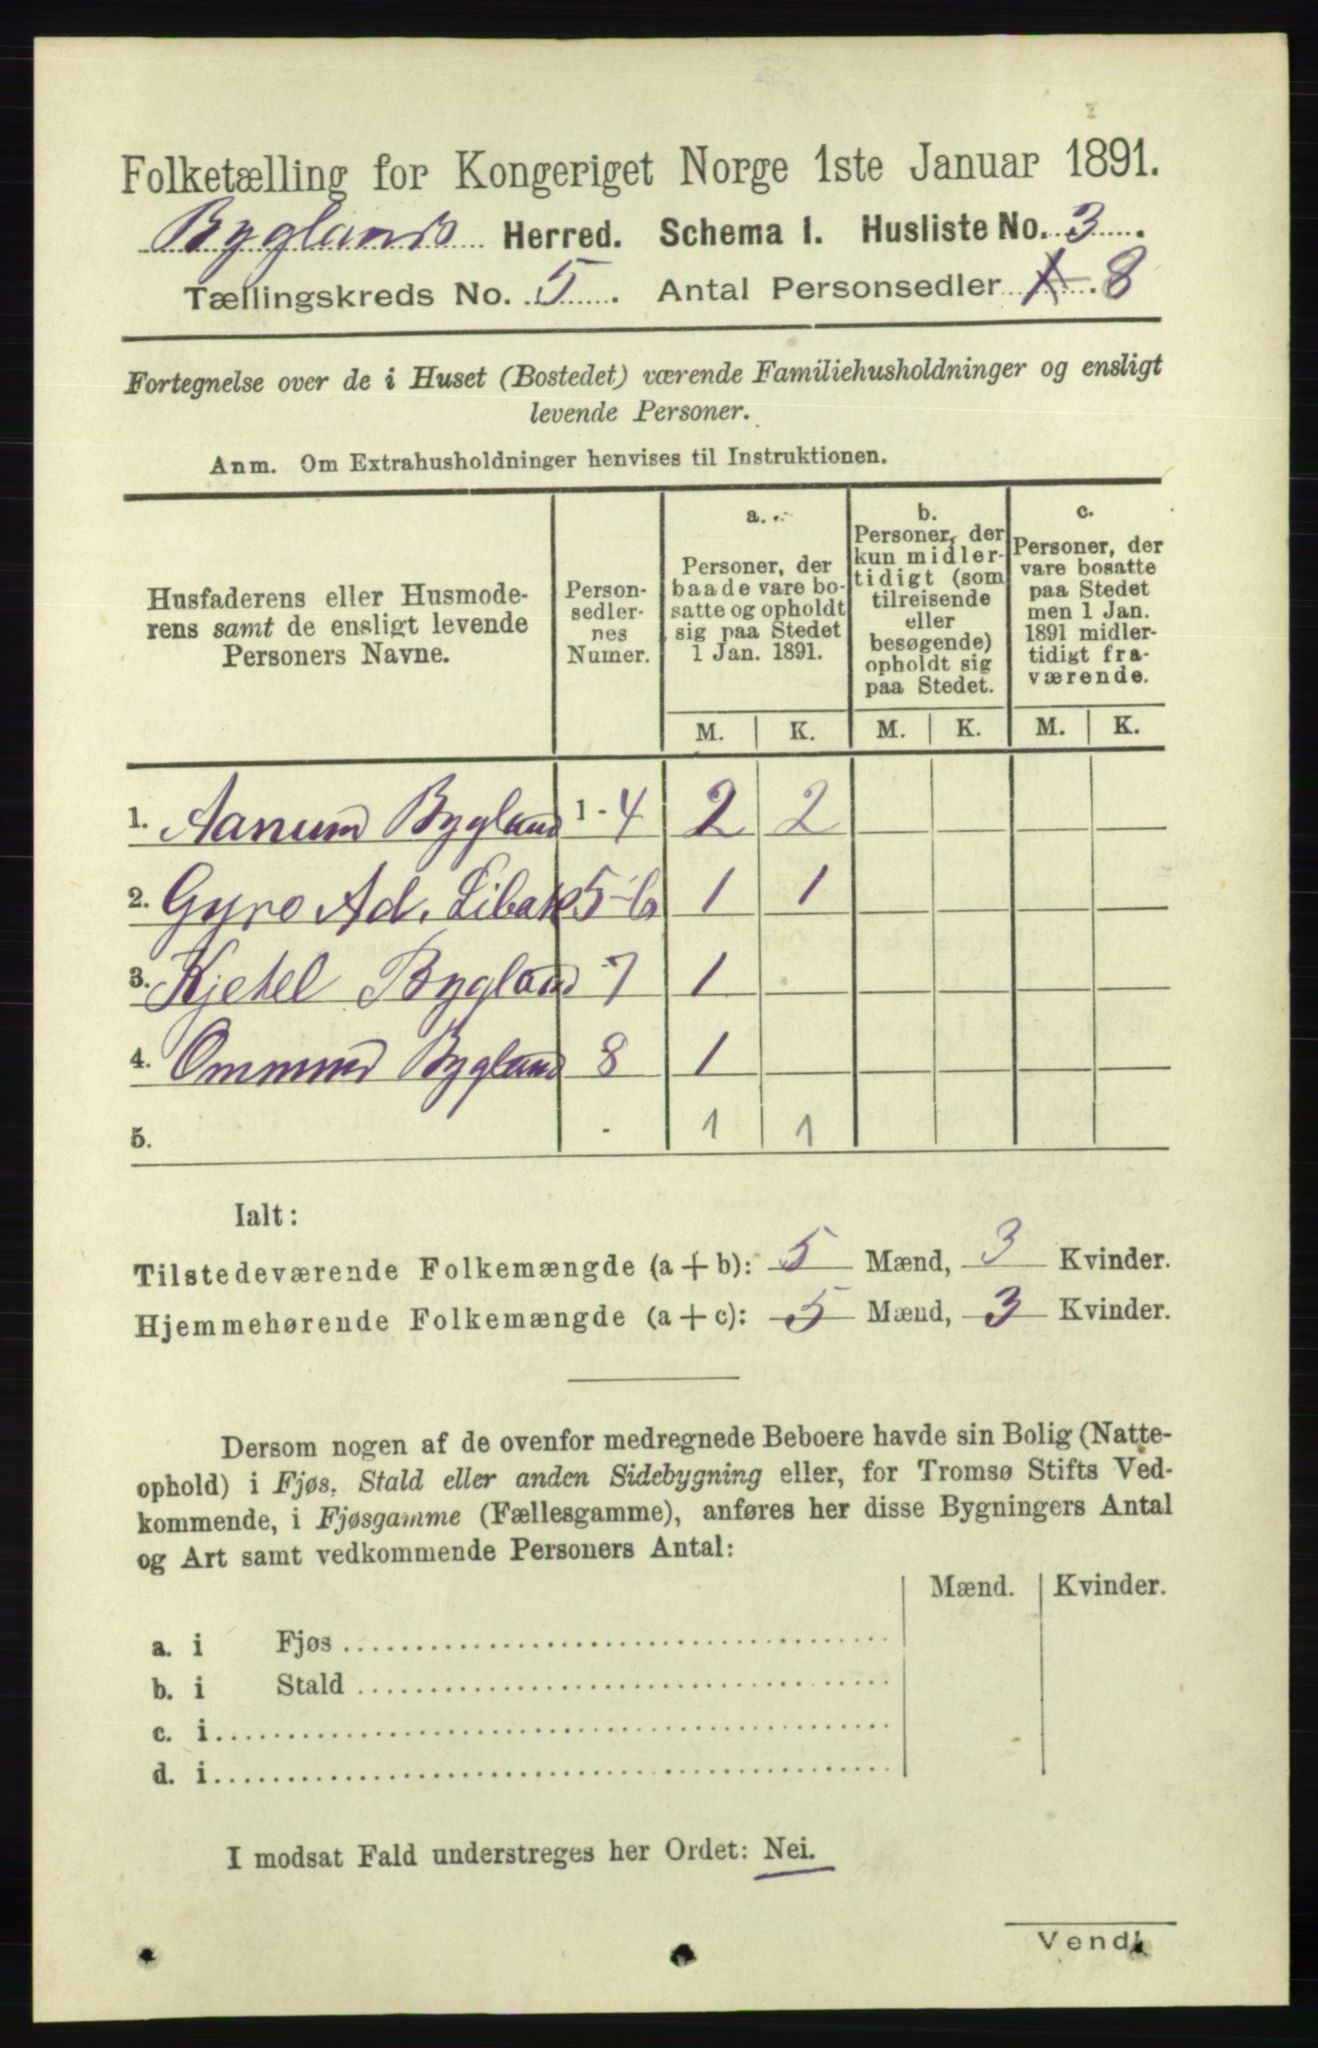 Folketælling for Kongeriget Norge 1ste Januar 1891.
Byglands Herred. Schema I. Husliste No. 3.
Tællingskreds No. 5. Antal Personsedler 8
Fortegnelse over de i Huset (Bostedet) værende Familiehusholdninger og ensligt
levende Personer.
Anm. Om Extrahusholdninger henvises til Instruktionen.
Husfaderens eller Husmode-
rens samt de ensligt levende
Personers Navne.
Person-
sedler-
nes
Numer.
a.
Personer, der
baade vare bo-
satte og opholdt
sig paa Stedet
1 Jan. 1891.
b.
Personer, der
kun midler-
tidigt (som
tilreisende
eller
besøgende)
opholdt sig
paa Stedet.
c.
Personer, der
vare bosatte
paa Stedet
men 1 Jan.
1891 midler-
tidigt fra-
værende.
M. K. M. K. M. K.
1. Aanund Bygland 1-4 2 2
2. Gyro Ad. Libak 5-6 1 1
3. Kjetel Bygland 7 1
4. Ommund Bygland 8 1
5. 1 1
Ialt:
Tilstedeværende Folkemængde (a+b): 5 Mænd, 3 Kvinder.
Hjemmehørende Folkemængde (a+c): 5 Mænd, 3 Kvinder.
Dersom nogen af de ovenfor medregnede Beboere havde sin Bolig (Natte-
ophold) i Fjøs, Stald eller anden Sidebygning eller, for Tromsø Stifts Ved-
kommende, i Fjøsgamme (Fællesgamme), anføres her disse Bygningers Antal
og Art samt vedkommende Personers Antal:
Mænd. Kvinder.
a. i Fjøs
b. i Stald
c. i
d. i
I modsat Fald understreges her Ordet: Nei.
Vend!